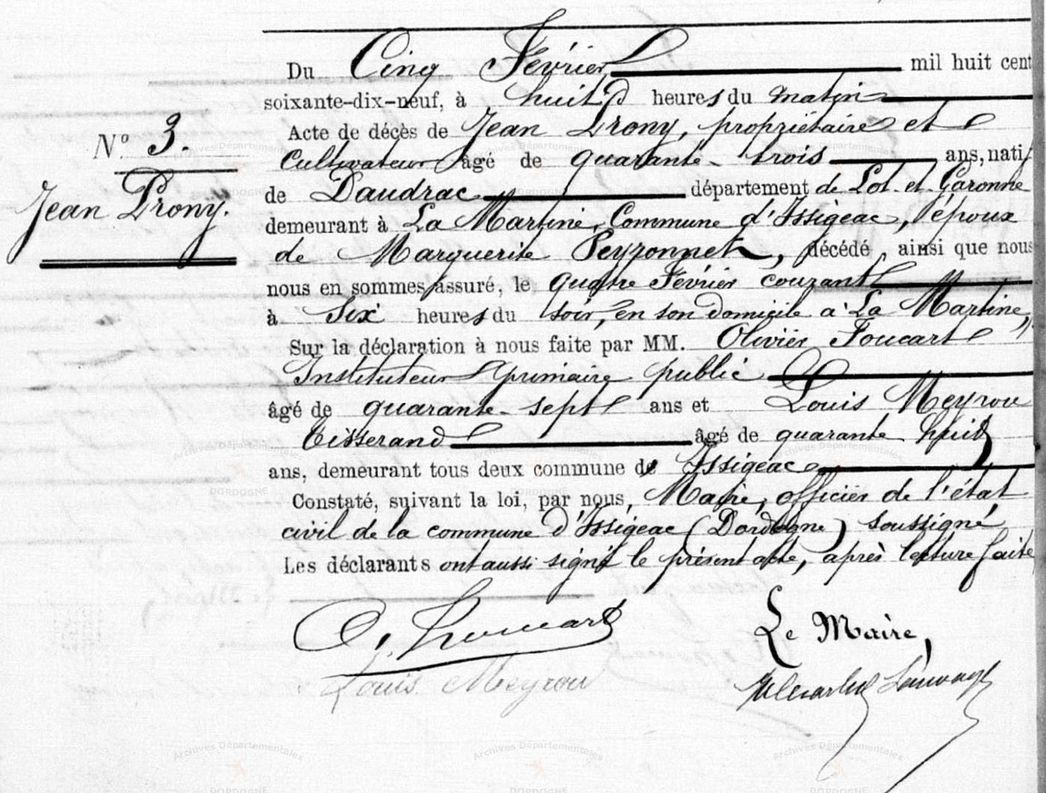 Du Cinq Février mil huit cent
soixante-dix-neuf, à huit heures du matin
Acte de décès de Jean Drony, propriétaire et
Cultivateur âgé de quarante-trois ans, nati
de Daudrac département de Lot et Garonne
demeurant à La Martine, Commune d'Issigeac, époux
de Marguerite Peyronnet, décédé, ainsi que nous
nous en sommes assuré, le quatre Février courant
à Six heures du soir, en son domicile à La Martine,
Sur la déclaration à nous faite par MM. Olivier Foucart
Instituteur primaire public
âgé de quarante-sept ans et Louis Meyrou
tisserand âgé de quarante huit
ans, demeurant tous deux commune de Issigeac
Constaté, suivant la loi, par nous, Maire, officier de l'état
civil de la commune d'Issigeac (Dordogne) soussigné
Les déclarants ont aussi signé le présent acte, après lecture faite
N° 3.
Jean Drony.
O. Foucart
Louis Meyrou
Le Maire,
Archives Départementales
DORDOGNE